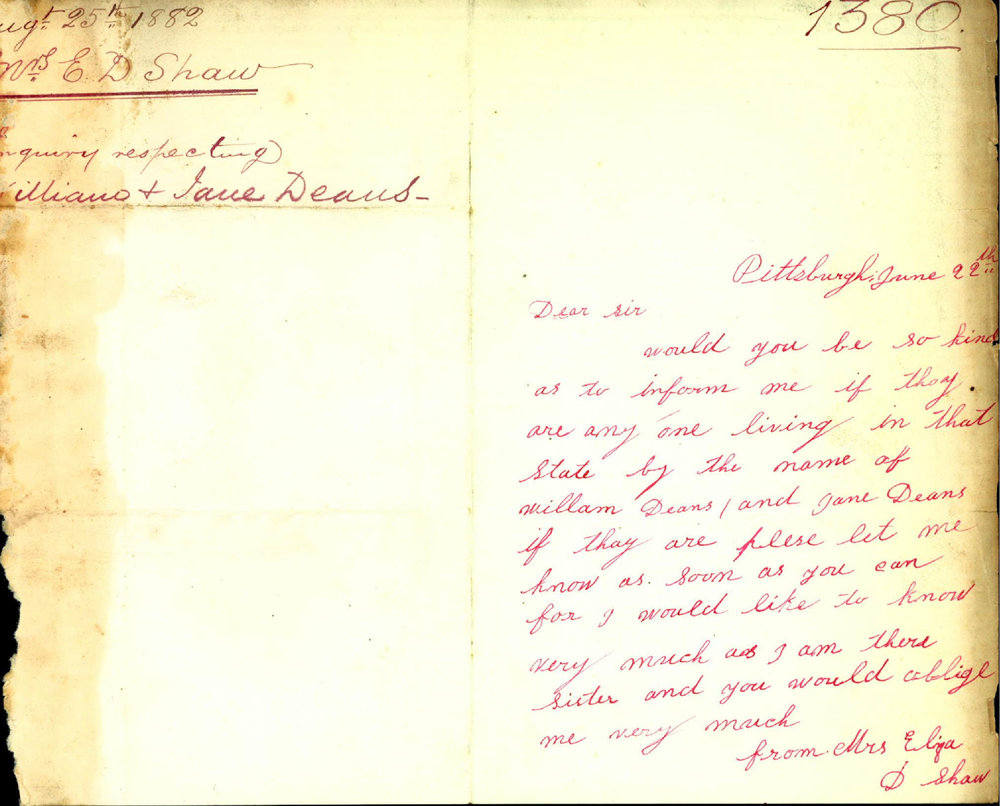 ugt 25th 1882
Mrs E. D Shaw
nquiry respecting
illiam & Jane Deans-
1380.
Pittsburgh, June 22th
Dear sir
would you be so kind
as to inform me if thay
are any one living in that
State by the name of
willam Deans / and Jane Deans
if thay are plese let me
know as. soon as you can
for I would like to know
very much as I am there
sister and you would oblige
me very much
from Mrs Eliza
D Shaw